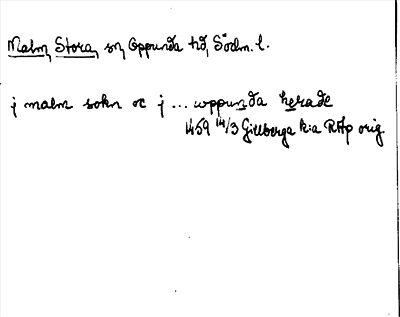 Malm, Stora, sn, Oppunda hd, Södm. l.
j malm sokn oc j ... wppunda herade
1459 14/3 Gillberga k:a RAp orig.